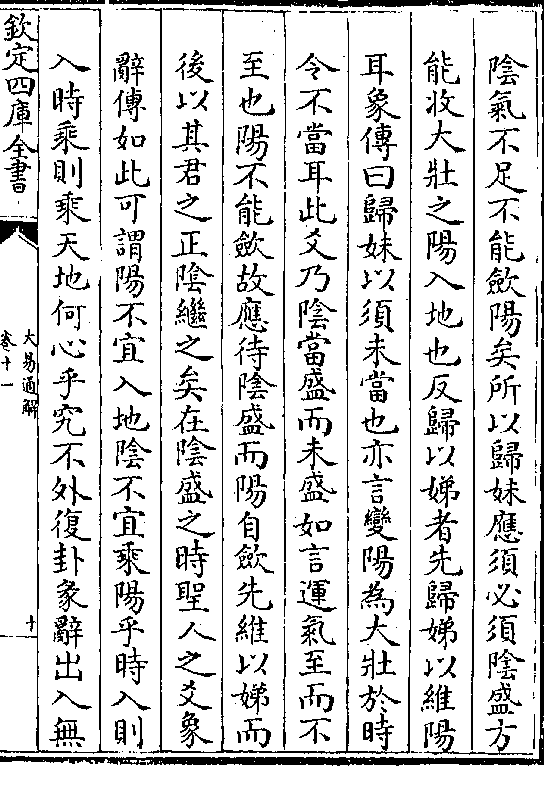 陰氣不足不能歛陽矣所以歸妹應須必須陰盛方
能收大壯之陽入地也反歸以娣者先歸娣以維陽
耳象傳曰歸妹以須未當也亦言變陽為大壯於時
令不當耳此爻乃陰當盛而未盛如言運氣至而不
至也陽不能歛故應待陰盛而陽自歛先維以娣而
後以其君之正陰繼之矣在陰盛之時聖人之爻象
辭傳如此可謂陽不宜入地陰不宜乘陽乎時入則
入時乘則乘天地何心乎究不外復卦彖辭出入無
欽定四庫全書
大易通解
卷十一
十